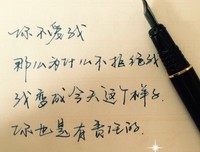 你不爱我
那么为什么不拒绝我
我变成今天这个样子
你也是有责任的.